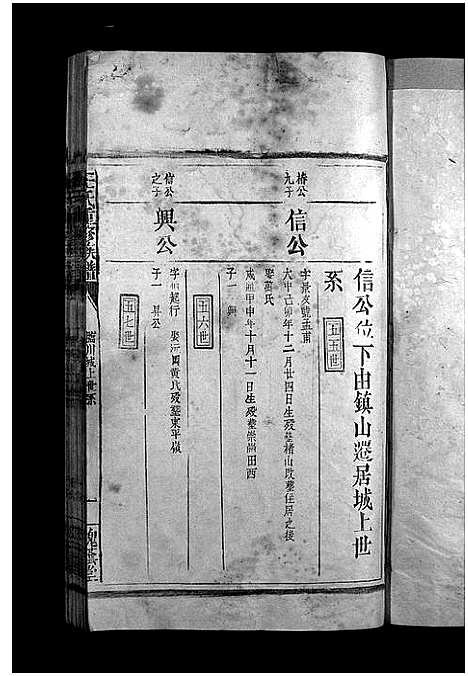 信公位下由鎮山遷居城上世
系
五五世
椿公
九子
信公
字景夕號孟甫
大中己卯年十二月廿四日生歿葬楮山改葬住居之後
娶萬氏
咸通甲申年十月十一日生歿葬崇崗田西
子一 興
五六世
信公
之子
興公
字 起行 娶河源黃氏歿葬東平嶺
子一 昇公
五七世
臨川城上世系
一